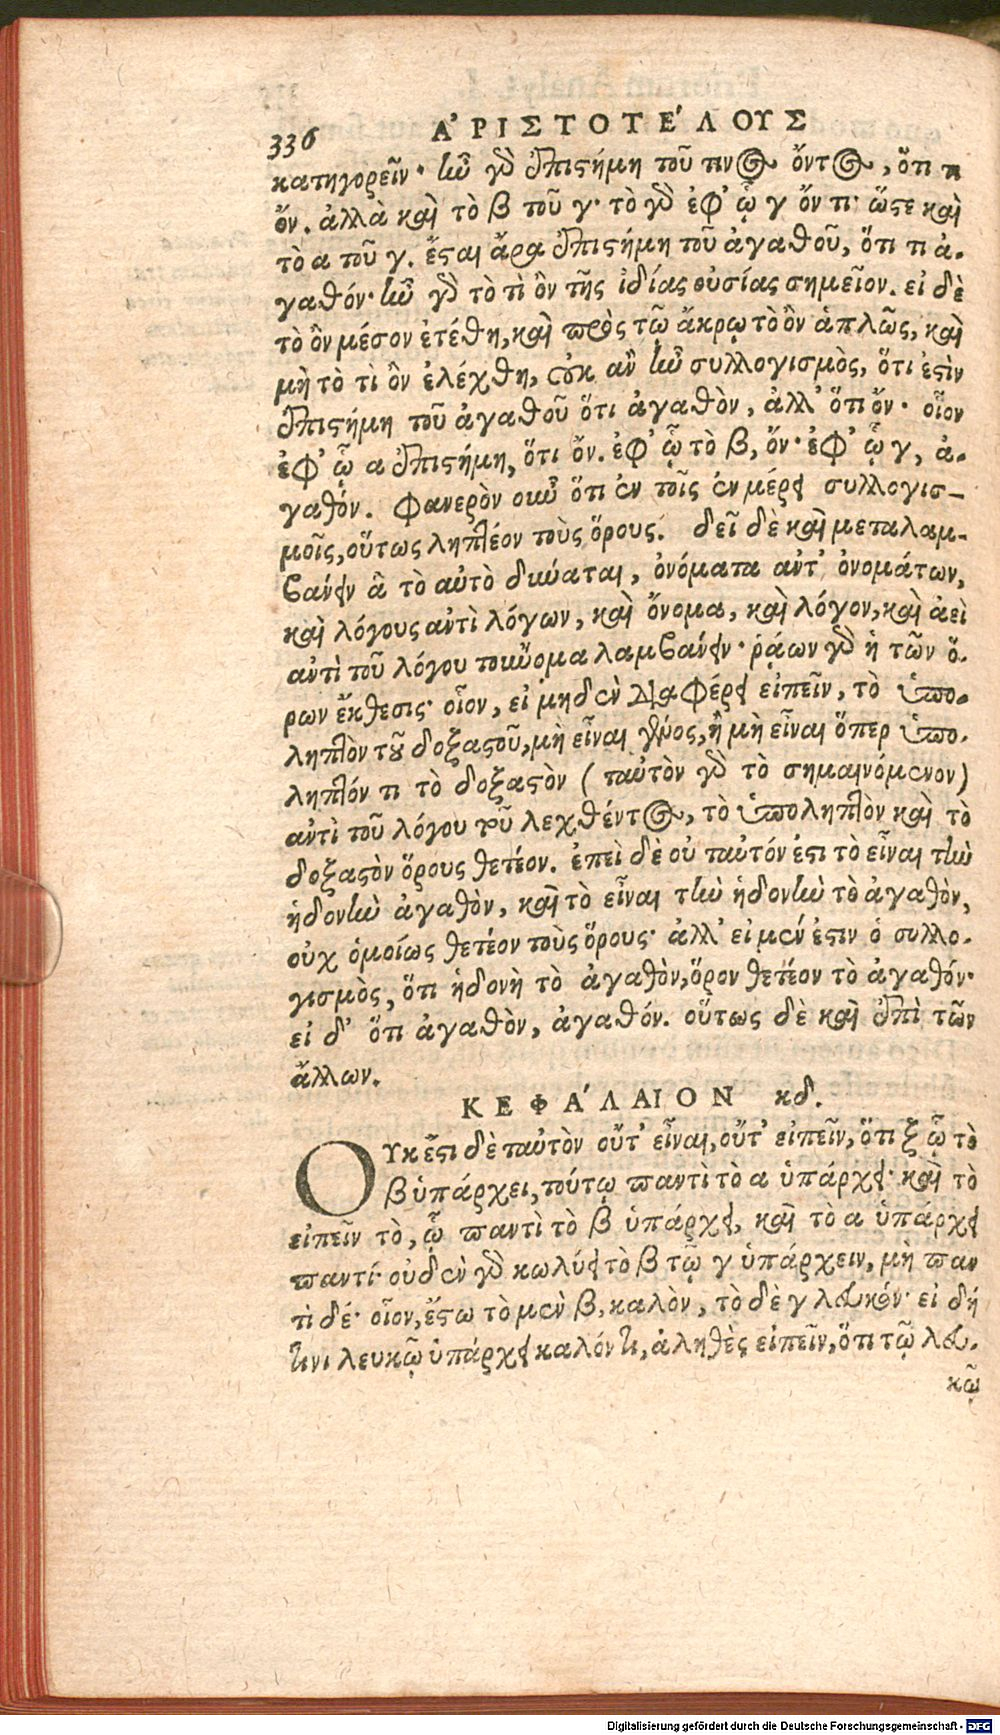 336 ἈΡΙΣΤΟΤΈΛΟΥΣ
κατηγορεῖν· ἦν γὸ ἐπιστήμη τοῦ τινὸς ὄντος, ὅτι τι
ὄν. ἀλλὰ καὶ τὸ β τοῦ γ· τὸ γὸ ἐφ' ᾧ γ ὄν τι· ὥστε καὶ
τὸ α τοῦ γ. ἔσται ἄρα ἐπιστήμη τοῦ ἀγαθοῦ, ὅτι τι ἀ-
γαθόν· ἦν γὸ τὸ τὶ ὂν τῆς ἰδίας οὐσίας σημεῖον. εἰ δὲ
τὸ ὂν μέσον ἐτέθη, καὶ πρὸς τῷ ἄκρῳ τὸ ὂν ἁπλῶς, καὶ
μὴ τὸ τὶ ὂν ἐλέχθη, οὐκ ἂν ἦν συλλογισμὸς, ὅτι ἐστὶν
ἐπιστήμη τοῦ ἀγαθοῦ ὅτι ἀγαθὸν, ἀλλ' ὅτι ὄν· οἷον
ἐφ' ᾧ α ἐπιστήμη, ὅτι ὄν. ἐφ' ᾧ τὸ β, ὄν· ἐφ' ᾧ γ, ἀ-
γαθόν. Φανερὸν οὖν ὅτι ἐν τοῖς ἐν μέρει συλλογισ-
μοῖς, οὕτως ληπτέον τοὺς ὅρους. δεῖ δὲ καὶ μεταλαμ-
βάνειν ἃ τὸ αὐτὸ δύναται, ὀνόματα ἀντ' ὀνομάτων,
καὶ λόγους ἀντὶ λόγων, καὶ ὄνομα, καὶ λόγον, καὶ ἀεὶ
ἀντὶ τοῦ λόγου τοὔνομα λαμβάνειν· ῥᾴων γὸ ἡ τῶν ὅ-
ρων ἔκθεσις· οἷον, εἰ μηδὲν διαφέρει εἰπεῖν, τὸ ὑπο-
ληπτὸν τοῦ δοξαστοῦ, μὴ εἶναι γένος, ἢ μὴ εἶναι ὅπερ ὑπο-
ληπτόν τι τὸ δοξαστὸν (ταὐτὸν γὸ τὸ σημαινόμενον)
ἀντὶ τοῦ λόγου τοῦ λεχθέντος, τὸ ὑποληπτὸν καὶ τὸ
δοξαστὸν ὅρους θετέον. ἐπεὶ δὲ οὐ ταὐτόν ἐστι τὸ εἶναι τὴν
ἡδονὴν ἀγαθὸν, καὶ τὸ εἶναι τὴν ἡδονὴν τὸ ἀγαθὸν,
οὐχ ὁμοίως θετέον τοὺς ὅρους· ἀλλ' εἰ μέν ἐστιν ὁ συλλο-
γισμὸς, ὅτι ἡδονὴ τὸ ἀγαθὸν, ὅρον θετέον τὸ ἀγαθόν·
εἰ δ' ὅτι ἀγαθὸν, ἀγαθόν. οὕτως δὲ καὶ ἐπὶ τῶν
ἄλλων.
ΚΕΦΆΛΑΙΟΝ κδ.
Οὐκ ἔστι δὲ ταὐτὸν οὔτ' εἶναι, οὔτ' εἰπεῖν, ὅτι ᾧ τὸ
β ὑπάρχει, τούτῳ παντὶ τὸ α ὑπάρχει· καὶ τὸ
εἰπεῖν τὸ, ᾧ παντὶ τὸ β ὑπάρχει, καὶ τὸ α ὑπάρχει
παντί· οὐδὲν γὸ κωλύει τὸ β τῷ γ ὑπάρχειν, μὴ παν
τὶ δέ· οἷον, ἔστω τὸ μὲν β, καλὸν, τὸ δὲ γ λευκόν· εἰ δή
τινι λευκῷ ὑπάρχει καλόν τι, ἀληθὲς εἰπεῖν, ὅτι τῷ λευ-
κῷ
Digitalisierung gefördert durch die Deutsche Forschungsgemeinschaft - DFG